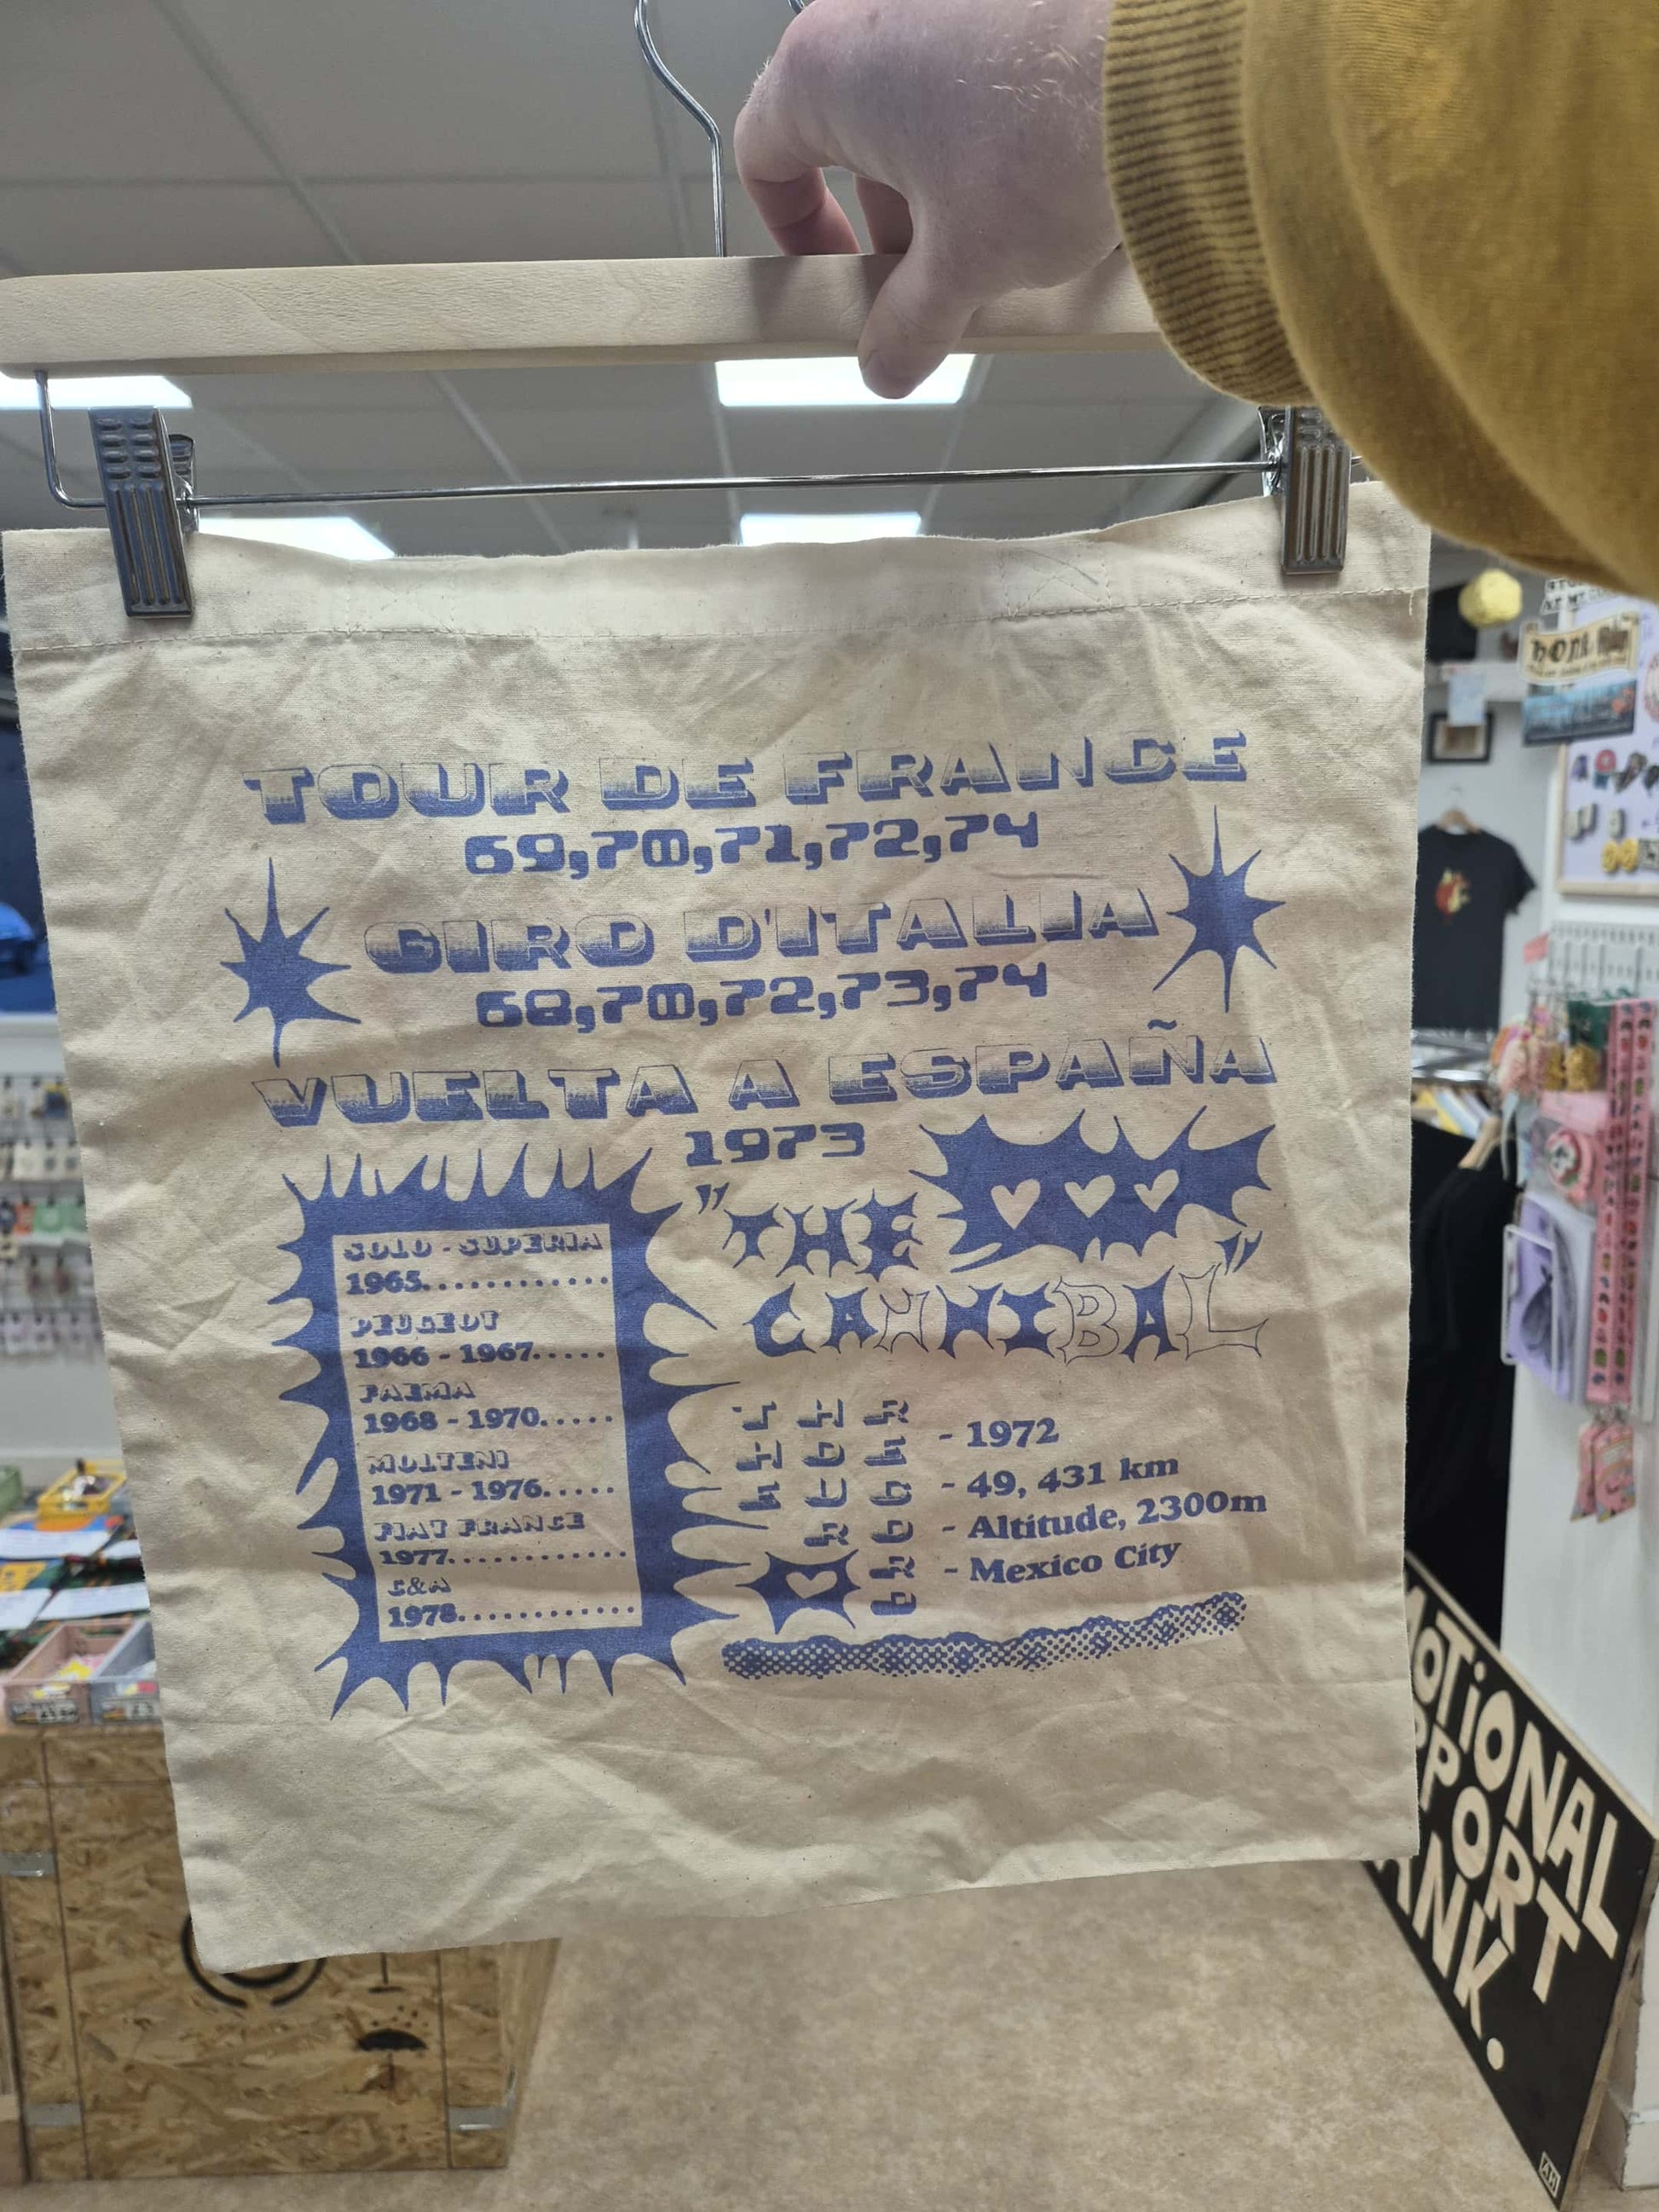 TOUR DE FRANCE
69,70,71,72,74
GIRO D'ITALIA
68,70,72,73,74
VUELTA A ESPAÑA
1973
SOLO - SUPERIA
1965............
PEUGEOT
1966 - 1967.....
FAEMA
1968 - 1970.....
MOLTENI
1971 - 1976.....
FIAT FRANCE
1977............
C&A
1978............
"THE
CANNIBAL"
T H R
H O E
E U C
R O
R
D
- 1972
- 49, 431 km
- Altitude, 2300m
- Mexico City
OTIONAL
PPORT
ANK.
AH